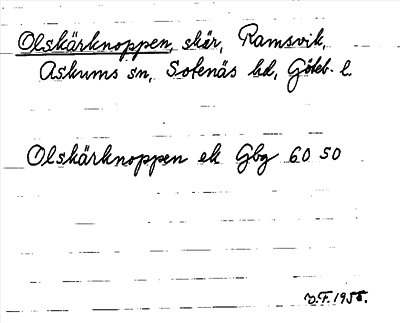 Olskärknoppen, skär, Ramsvik,
Askums sn, Sotenäs hd, Göteb. l.
Olskärknoppen ek Gbg 60 SO
F. 1955.